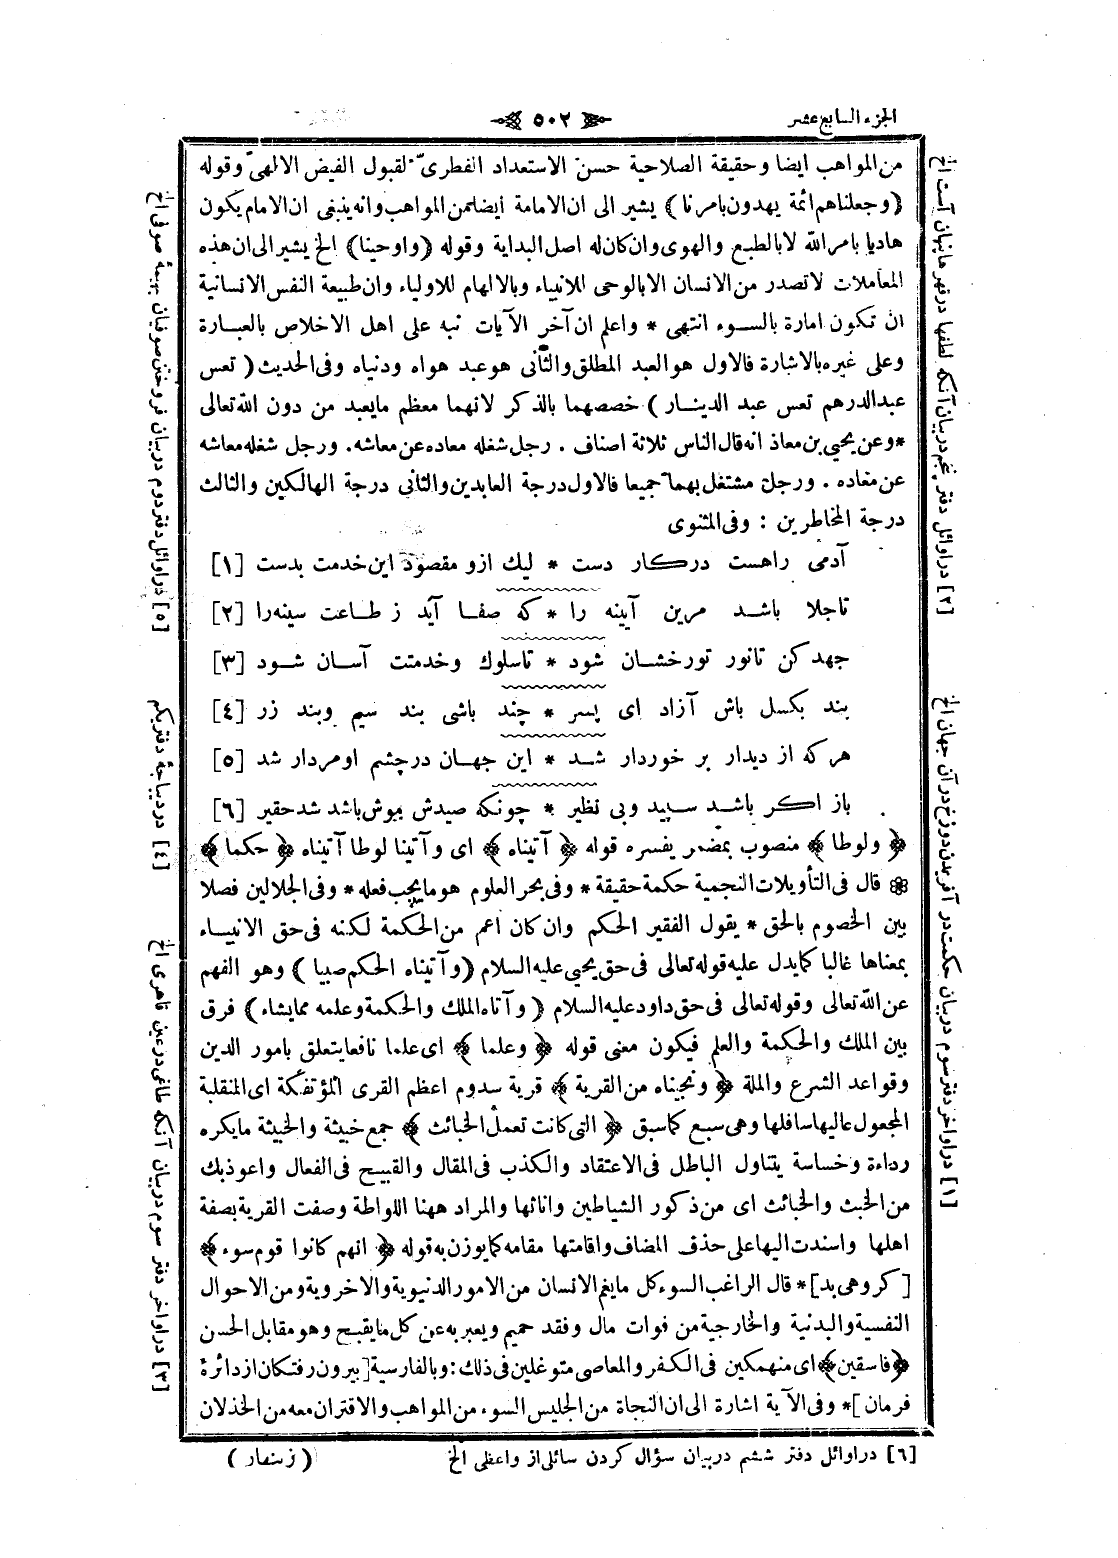 الجزء السابع عشر
٥٠٢
من المواهب ايضا وحقيقة الصلاحية حسن الاستعداد الفطرى لقبول الفيض الالهى وقوله
(وجعلناهم ائمة يهدون بامرنا) يشير الى ان الامامة ايضا من المواهب وانه ينبغى ان الامام يكون
هاديا بامر الله لا بالطبع والهوى وان كان له اصل البداية وقوله (واوحينا) الخ يشير الى ان هذه
المعاملات لا تصدر من الانسان الا بالوحى للانبياء وبالالهام للاولياء وان طبيعة النفس الانسانية
ان تكون امارة بالسوء انتهى * واعلم ان آخر الآيات نبه على اهل الاخلاص بالعبارة
وعلى غيره بالاشارة فالاول هو العبد المطلق والثانى هو عبد هواه ودنياه وفى الحديث (تعس
عبد الدرهم تعس عبد الدينار) خصصهما بالذكر لانهما معظم ما يعبد من دون الله تعالى
*وعن يحيى بن معاذ انه قال الناس ثلاثة اصناف . رجل شغله معاده عن معاشه. ورجل شغله معاشه
عن معاده . ورجل مشتغل بهما جميعا فالاول درجة العابدين والثانى درجة الهالكين والثالث
درجة المخاطرين : وفى المثنوى
آدمى راهست در كار دست * ليك ازو مقصود اين خدمت بدست [١]
تاجلا باشد مرين آيينه را * كه صفا آيد ز طاعت سينه را [٢]
جهد كن تا نور تو رخشان شود * تا سلوك وخدمتت آسان شود [٣]
بند بكسل باش آزاد اى پسر * چند باشى بند سيم وبند زر [٤]
هر كه از ديدار بر خوردار شد * اين جهان در چشم او مردار شد [٥]
باز اكر باشد سپيد وبى نظير * چونكه صيدش موش باشد شد حقير [٦]
﴿ولوطا﴾ منصوب بمضمر يفسره قوله ﴿آتيناه﴾ اى وآتينا لوطا آتيناه ﴿حكما﴾
قال فى التأويلات النجمية حكمة حقيقة * وفى بحر العلوم هو ما يجب فعله * وفى الجلالين فصلا
بين الخصوم بالحق * يقول الفقير الحكم وان كان اعم من الحكمة لكنه فى حق الانبياء
بمعناها غالبا كما يدل عليه قوله تعالى فى حق يحيى عليه السلام (وآتيناه الحكم صبيا) وهو الفهم
عن الله تعالى وقوله تعالى فى حق داود عليه السلام (وآتاه الملك والحكمة وعلمه مما يشاء) فرق
بين الملك والحكمة والعلم فيكون معنى قوله ﴿وعلما﴾ اى علما نافعا يتعلق بامور الدين
وقواعد الشرع والملة ﴿ونجيناه من القرية﴾ قرية سدوم اعظم القرى المؤتفكة اى المنقلبة
المجعول عاليها سافلها وهى سبع كما سبق ﴿التى كانت تعمل الخبائث﴾ جمع خبيثة والخبيثة ما يكره
رداءة وخساسة يتناول الباطل فى الاعتقاد والكذب فى المقال والقبيح فى الفعال واعوذ بك
من الخبث والخبائث اى من ذكور الشياطين واناثها والمراد ههنا اللواطة وصفت القرية بصفة
اهلها واسندت اليها على حذف المضاف واقامتها مقامه كما يوزن به قوله ﴿انهم كانوا قوم سوء﴾
[كروهى بد]* قال الراغب السوء كل ما يغم الانسان من الامور الدنيوية والاخروية ومن الاحوال
النفسية والبدنية والخارجية من فوات مال وفقد حميم ويعبر به عن كل ما يقبح وهو مقابل الحسن
﴿فاسقين﴾ اى منهمكين فى الكفر والمعاصى متوغلين فى ذلك : وبالفارسية [بيرون رفتكان از دائرۀ
فرمان]* وفى الآية اشارة الى ان النجاة من الجليس السوء من المواهب والاقتران معه من الخذلان
[٦] در اوائل دفتر ششم در بيان سؤال كردن سائلى از واعظى الخ
(زينهار)
[١] در اواخر دفتر سوم در بيان حكمت در آفريدن دوزخ در آن جهان الخ
[٢] در اوائل دفتر پنجم در بيان آنكه لطفها در قهرها پنهان است الخ
[٣] در اواخر دفتر سوم در بيان آنكه طاغى در عين قاهرى الخ
[٤] در ديباجۀ دفتر يكم
[٥] در اوائل دفتر دوم در بيان فروختن صوفيان بهيمۀ صوفى الخ